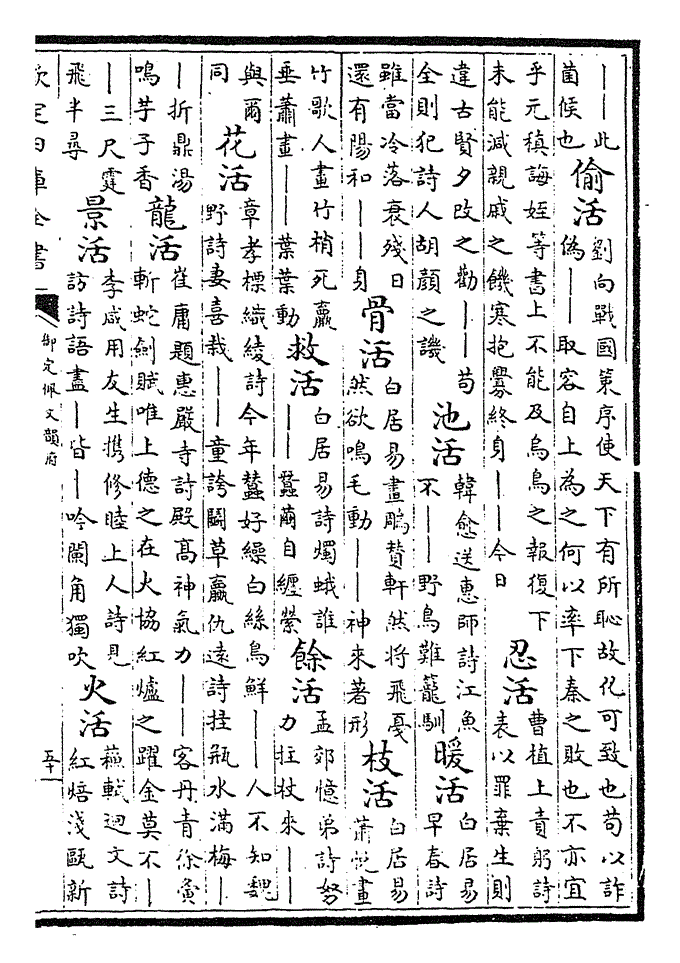 ——此
菌候也
偷活
劉向戰國策序使天下有所恥故化可致也苟以詐
偽——取容自上為之何以率下秦之敗也不亦宜
乎元稹誨姪等書上不能及烏鳥之報復下
未能減親戚之饑寒抱釁終身——今日
忍活
曹植上責躬詩
表以罪棄生則
違古賢夕改之勸——苟
全則犯詩人胡顏之譏
池活
韓愈送惠師詩江魚
不——野鳥難籠馴
暖活
白居易
早春詩
雖當冷落衰殘日
還有陽和——身
骨活
白居易畫鵰贊軒然將飛戛
然欲鳴毛動——神來著形
枝活
白居易
蕭悅畫
竹歌人畫竹梢死羸
垂蕭畫——葉葉動
救活
白居易詩燭蛾誰
——蠶繭自纏縈
餘活
孟郊憶弟詩努
力拄杖來——
與爾
同
花活
章孝標織綾詩今年蠶好繰白絲鳥鮮——人不知魏
野詩妻喜栽——童誇鬭草贏仇遠詩拄瓶水滿梅—
—折鼎湯
鳴芋子香
龍活
崔庸題惠嚴寺詩殿高神氣力——客丹青徐夤
斬蛇劍賦唯上德之在火協紅爐之躍金莫不—
—三尺霆
飛半尋
景活
李咸用友生攜修睦上人詩見
訪詩語盡—皆—吟闌角獨吹
火活
蘇軾迴文詩
紅焙淺甌新
欽定四庫全書
御定佩文韻府
五十一